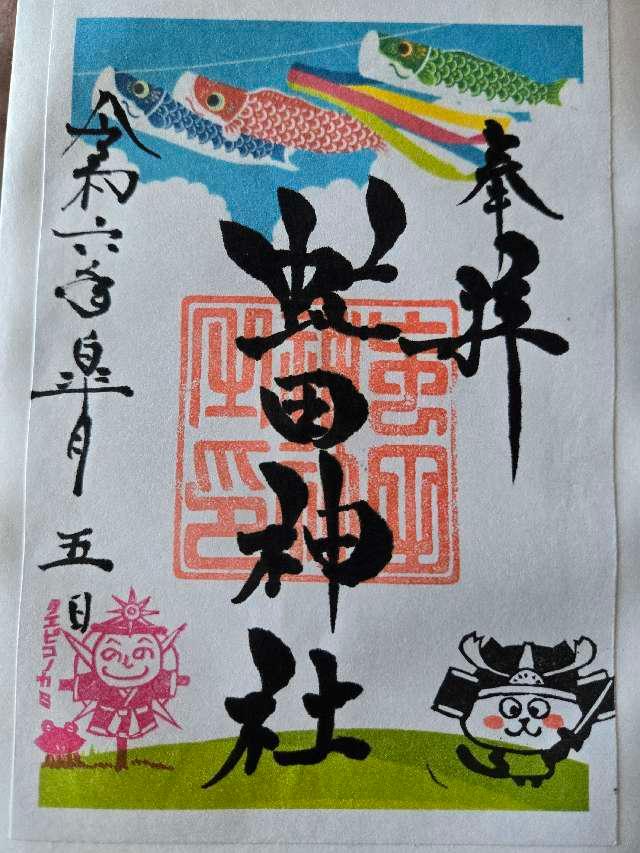 奉拝
田神社
令和六年皐月五日
クエビコノカミ